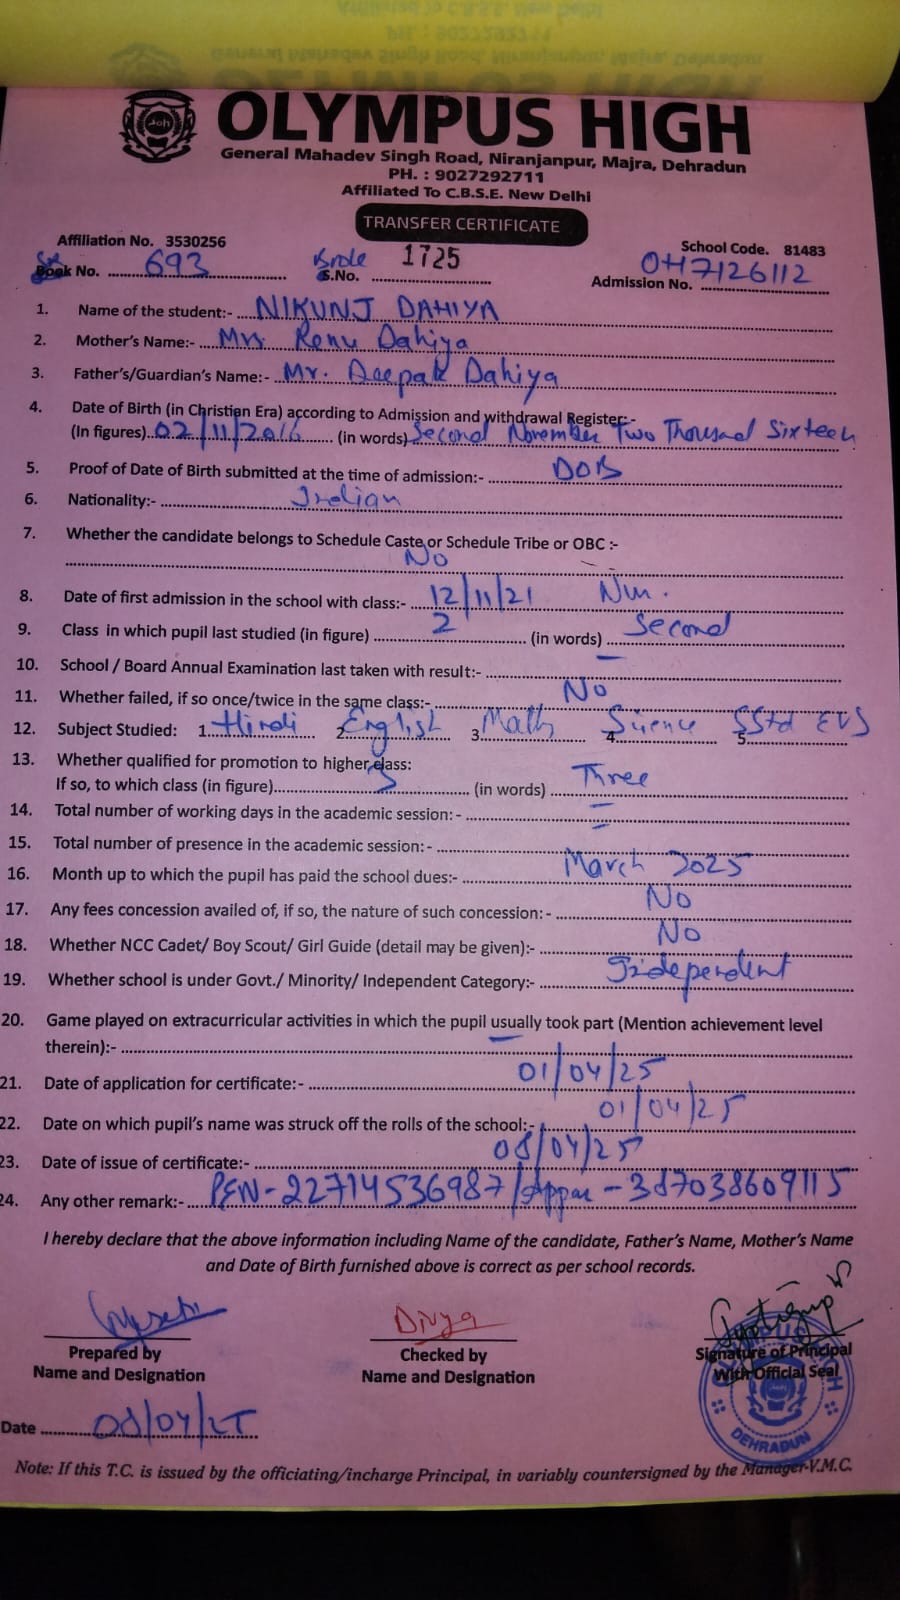 OLYMPUS HIGH
General Mahadev Singh Road, Niranjanpur, Majra, Dehradun
PH. : 9027292711
Affiliated To C.B.S.E. New Delhi
TRANSFER CERTIFICATE
Affiliation No. 3530256
School Code. 81483
Book No. 693
S.No. 1725
Admission No. OH7126112
1. Name of the student:- NIKUNJ DAHIYA
2. Mother's Name:- Mrs. Renu Dahiya
3. Father's/Guardian's Name:- Mr. Deepak Dahiya
4. Date of Birth (in Christian Era) according to Admission and withdrawal Register:-
(In figures) 02/11/2016 (in words) Second November Two Thousand Sixteen
5. Proof of Date of Birth submitted at the time of admission:- DOB
6. Nationality:- Indian
7. Whether the candidate belongs to Schedule Caste or Schedule Tribe or OBC :-
No
8. Date of first admission in the school with class:- 12/11/21 Nur.
9. Class in which pupil last studied (in figure) 2 (in words) Second
10. School / Board Annual Examination last taken with result:- —
11. Whether failed, if so once/twice in the same class:- No
12. Subject Studied: 1. Hindi 2. English 3. Math 4. Science 5. SSt EVS
13. Whether qualified for promotion to higher class:
If so, to which class (in figure) 3 (in words) Three
14. Total number of working days in the academic session: - —
15. Total number of presence in the academic session:- —
16. Month up to which the pupil has paid the school dues:- March 2025
17. Any fees concession availed of, if so, the nature of such concession: - No
18. Whether NCC Cadet/ Boy Scout/ Girl Guide (detail may be given):- No
19. Whether school is under Govt./ Minority/ Independent Category:- Independent
20. Game played on extracurricular activities in which the pupil usually took part (Mention achievement level
therein):- —
21. Date of application for certificate:- 01/04/25
22. Date on which pupil's name was struck off the rolls of the school:- 01/04/25
23. Date of issue of certificate:- 08/04/25
24. Any other remark:- PEN-22714536987/Appar-387038609115
I hereby declare that the above information including Name of the candidate, Father's Name, Mother's Name
and Date of Birth furnished above is correct as per school records.
Divya
Prepared by
Name and Designation
Checked by
Name and Designation
Signature of Principal
With Official Seal
DEHRADUN
Date 08/04/25
Note: If this T.C. is issued by the officiating/incharge Principal, in variably countersigned by the Manager-V.M.C.